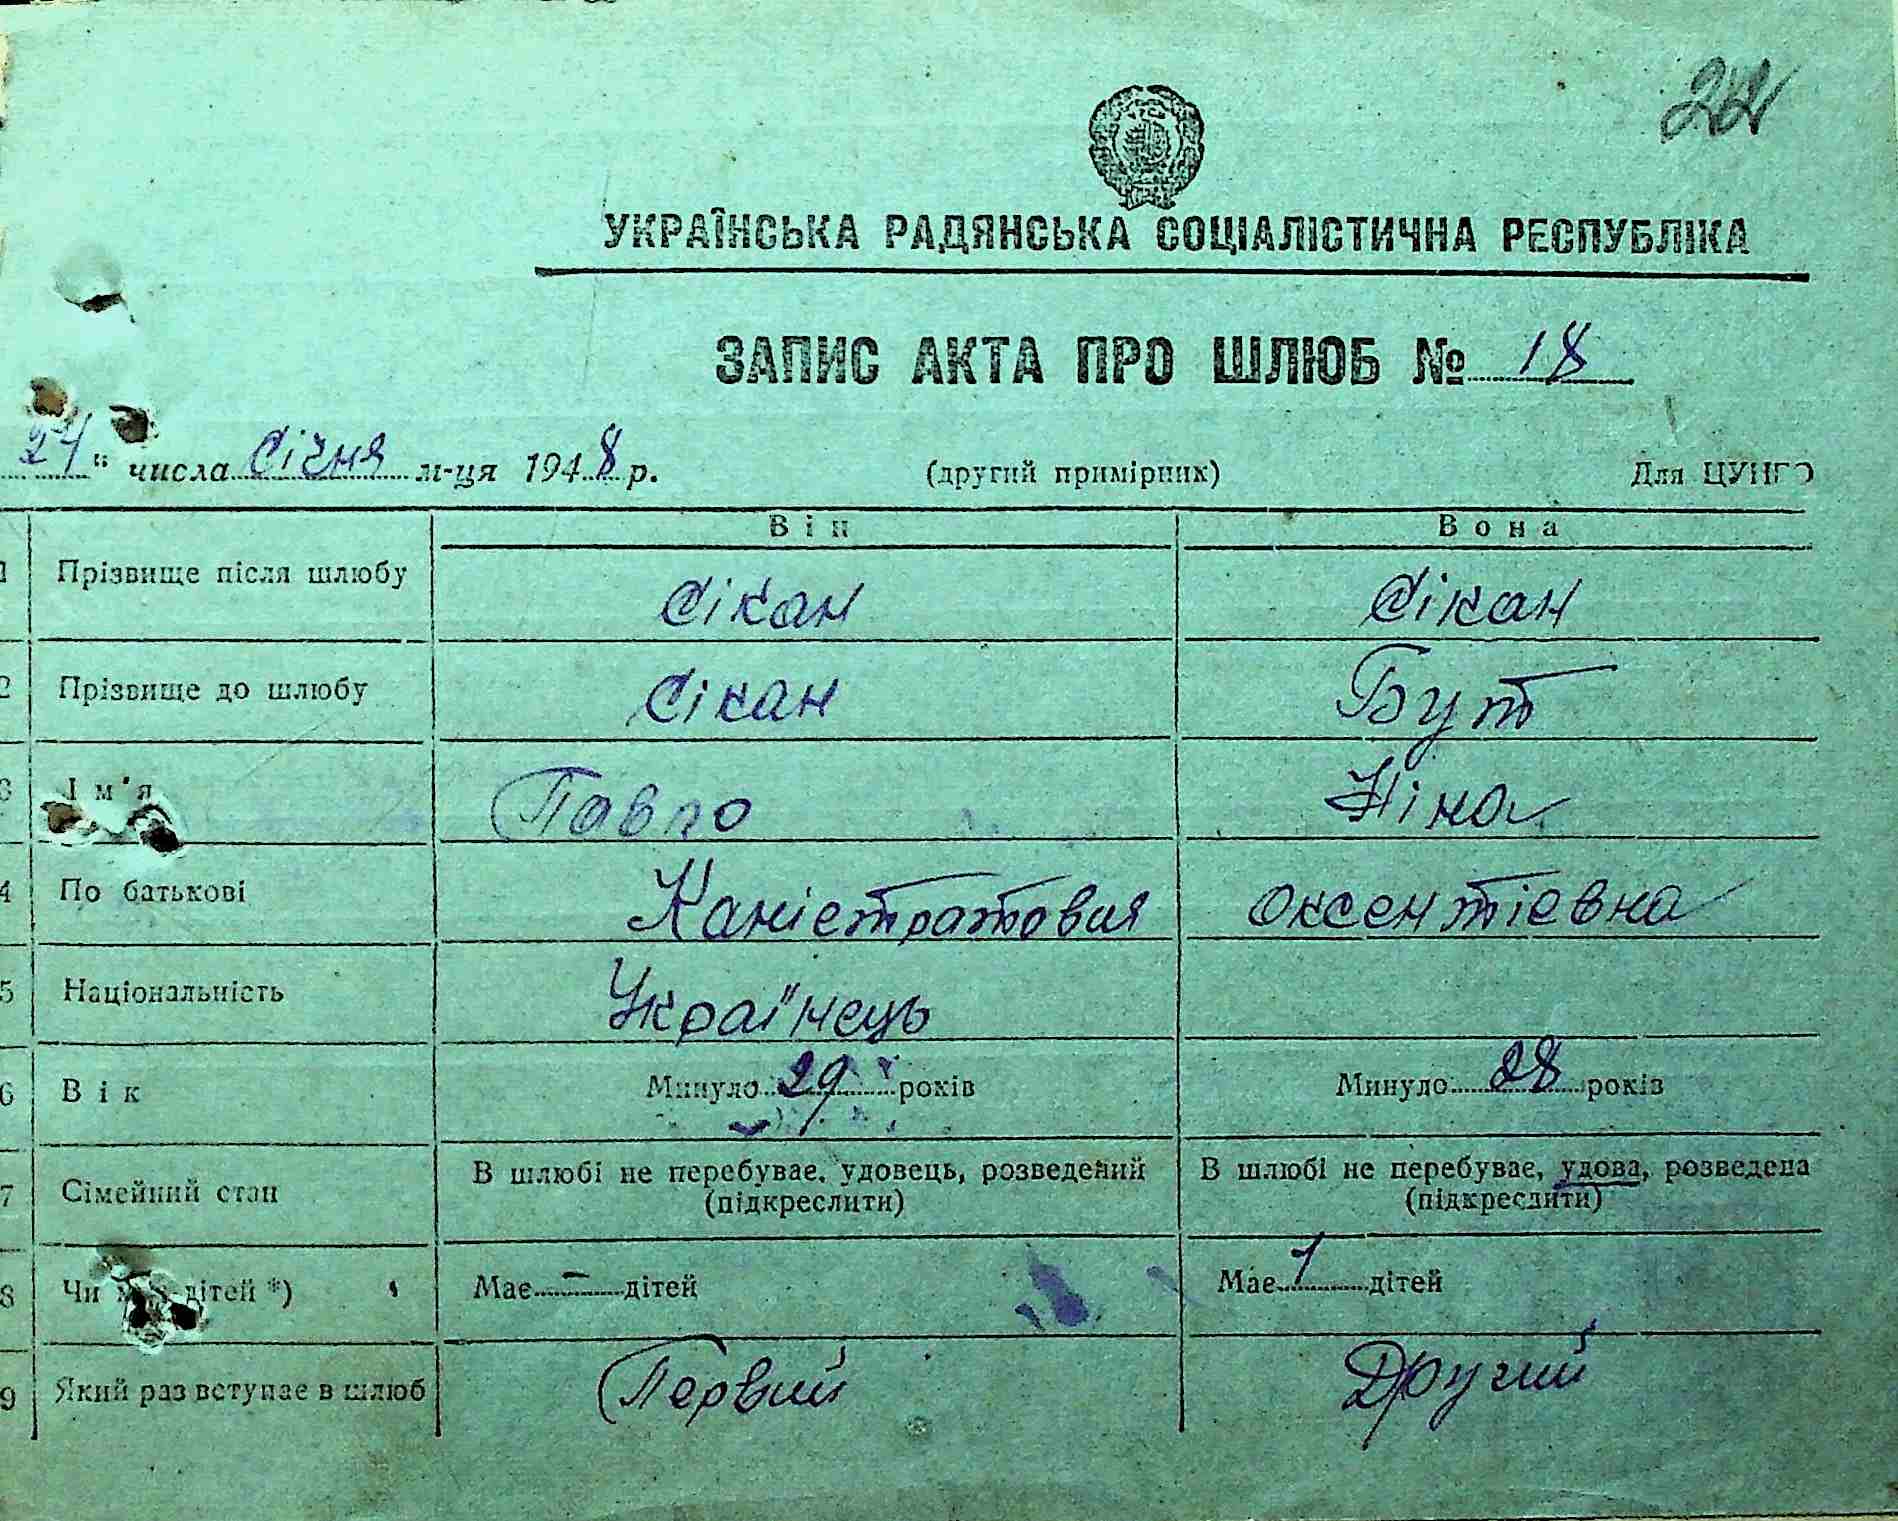 22
УКРАЇНСЬКА РАДЯНСЬКА СОЦІАЛІСТИЧНА РЕСПУБЛІКА
ЗАПИС АКТА ПРО ШЛЮБ № 18
24 " числа Січня м-ця 1948 р. (другий примірник) Для ЦУНГО
Він Вона
1 Прізвище після шлюбу Сікан Сікан
2 Прізвище до шлюбу Сікан Бут
3 Ім'я Павло Ніна
4 По батькові Каністратович Оксентієвна
5 Національність Українець
6 Вік Минуло 29 років Минуло 28 років
7 Сімейний стан В шлюбі не перебуває, удовець, розведений В шлюбі не перебуває, удова, розведена
(підкреслити) (підкреслити)
8 Чи має дітей *) Має – дітей Має 1 дітей
9 Який раз вступає в шлюб Первий Другий